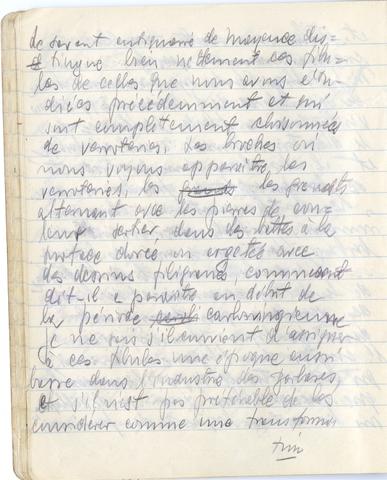 de savant antiquaire de Mayence dis-
tingue bien nettement ces fibu-
les de celles que nous avons étu-
diées précédemment et qui
sont complètement cloisonnées
de verroteries. Les broches où
nous voyons apparaître les
verroteries, les grenats
alternant avec les pierres de cou-
leur serties dans des bâtes à la
surface dorée ou argentée avec
des dessins filigranés, commencent
dit-il a paraître au début de
la période carlovingienne
je ne sais s'il convient d'assigner
à ces fibules une époque aussi
basse dans l'industrie des barbares,
et s'il n'est pas préférable de les
considérer comme une transforma
tion